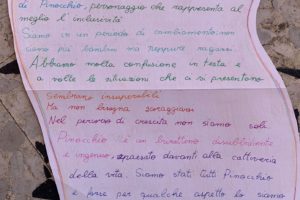 di Pinocchio, personaggio che rappresenta al
meglio l'inclusività
Siamo in un periodo di cambiamento: non
siamo più bambini ma neppure ragazzi.
Abbiamo molta confusione in testa e
a volte le situazioni che ci si presentano
Sembrano insuperabili
Ma non bisogna scoraggiarsi
Nel percorso di crescita non siamo soli
Pinocchio è un burattino disubbidiente
e ingenuo, spaesato davanti alla cattiveria
della vita. Siamo stati tutti Pinocchio
e forse per qualche aspetto lo siamo